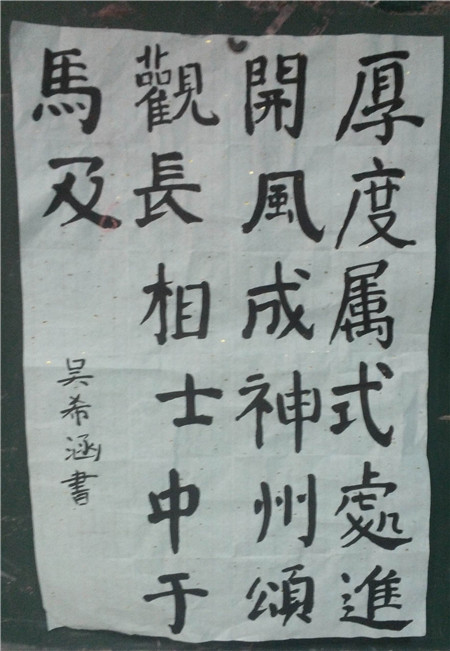 厚度属式處進
開風成神州頌
觀長相士中于
馬及
吴希涵書